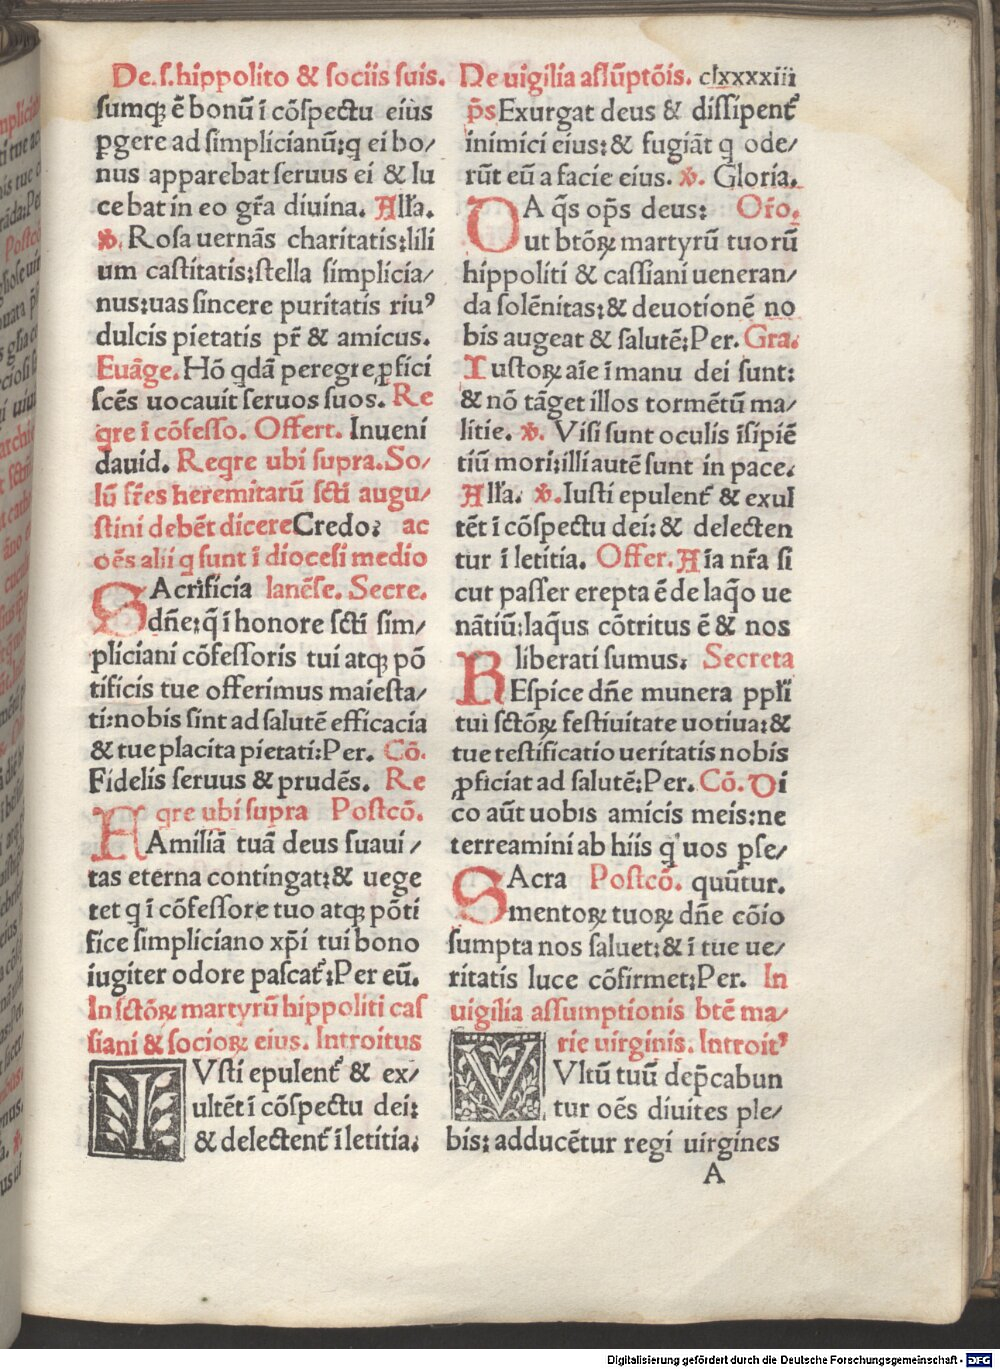 De. ſ. hippolito & ſociis ſuis. De uigilia aſſūptōis. clxxxxiii
ſumqꝫ ē bonū ī cōſpectu eius
ꝑgere ad ſimplicianū: q ei bo/
nus apparebat ſeruus ei & lu
cebat in eo grā diuina. Alła.
℣. Roſa uernās charitatis: lili
um caſtitatis: ſtella ſimplicia/
nus: uas ſincere puritatis riuꝰ
dulcis pietatis pr̄ & amicus.
Euāge. Hō qdā peregre ꝓfici
ſcēs uocauit ſeruos ſuos. Re
qre ī cōfeſſo. Offert. Inueni
dauid. Reqre ubi ſupra. So/
lū fr̄es heremitarū ſcti augu/
ſtini debēt dicere Credo: ac
oēs alii q ſunt ī dioceſi medio
SAcrificia lanēſe. Secre.
dn̄e: q̄ ī honore ſcti ſim/
pliciani cōfeſſoris tui atqꝫ pō
tificis tue offerimus maieſta/
ti: nobis ſint ad ſalutē efficacia
& tue placita pietati: Per. Cō.
Fidelis ſeruus & prudēs. Re
qre ubi ſupra Poſtcō.
FAmiliā tuā deus ſuaui /
tas eterna contingat: & uege
tet q ī cōfeſſore tuo atqꝫ pōti
fice ſimpliciano xp̄i tui bono
iugiter odore paſcat᷑: Per eū.
In ſctōꝝ martyrū hippoliti caſ
ſiani & ſocioꝝ eius. Introitus
IVſti epulent᷑ & ex/
ultēt ī cōſpectu dei:
& delectent᷑ ī letitia.
p̄s Exurgat deus & diſſipent᷑
inimici eius: & fugiāt q ode/
rūt eū a facie eius. ℣. Gloria.
DA q̄s op̄s deus: Oro.
ut btōꝝ martyrū tuorū
hippoliti & caſſiani ueneran/
da ſolēnitas: & deuotionē no
bis augeat & ſalutē: Per. Gra.
Iuſtoꝝ aīe ī manu dei ſunt:
& nō tāget illos tormētū ma/
litie. ℣. Viſi ſunt oculis īſipiē
tiū mori: illi autē ſunt in pace.
Alła. ℣. Iuſti epulent᷑ & exul
tēt ī cōſpectu dei: & delecten
tur ī letitia. Offer. Aīa nr̄a ſi
cut paſſer erepta ē de laq̄o ue
nātiū: laq̄us cōtritus ē & nos
liberati ſumus. Secreta
REſpice dn̄e munera ppłi
tui ſctōꝝ feſtiuitate uotiua: &
tue teſtificatio ueritatis nobis
ꝓficiat ad ſalutē: Per. Cō. Di
co aūt uobis amicis meis: ne
terreamini ab hiis q uos pſe/
SAcra Poſtcō. quūtur.
mentoꝝ tuoꝝ dn̄e cōio
ſumpta nos ſaluet: & ī tue ue/
ritatis luce cōfirmet: Per. In
uigilia aſſumptionis btē ma/
rie uirginis. Introitꝰ
VVltū tuū dep̄cabun
tur oēs diuites ple/
bis: adducētur regi uirgines
A
Digitalisierung gefördert durch die Deutsche Forschungsgemeinschaft - DFG